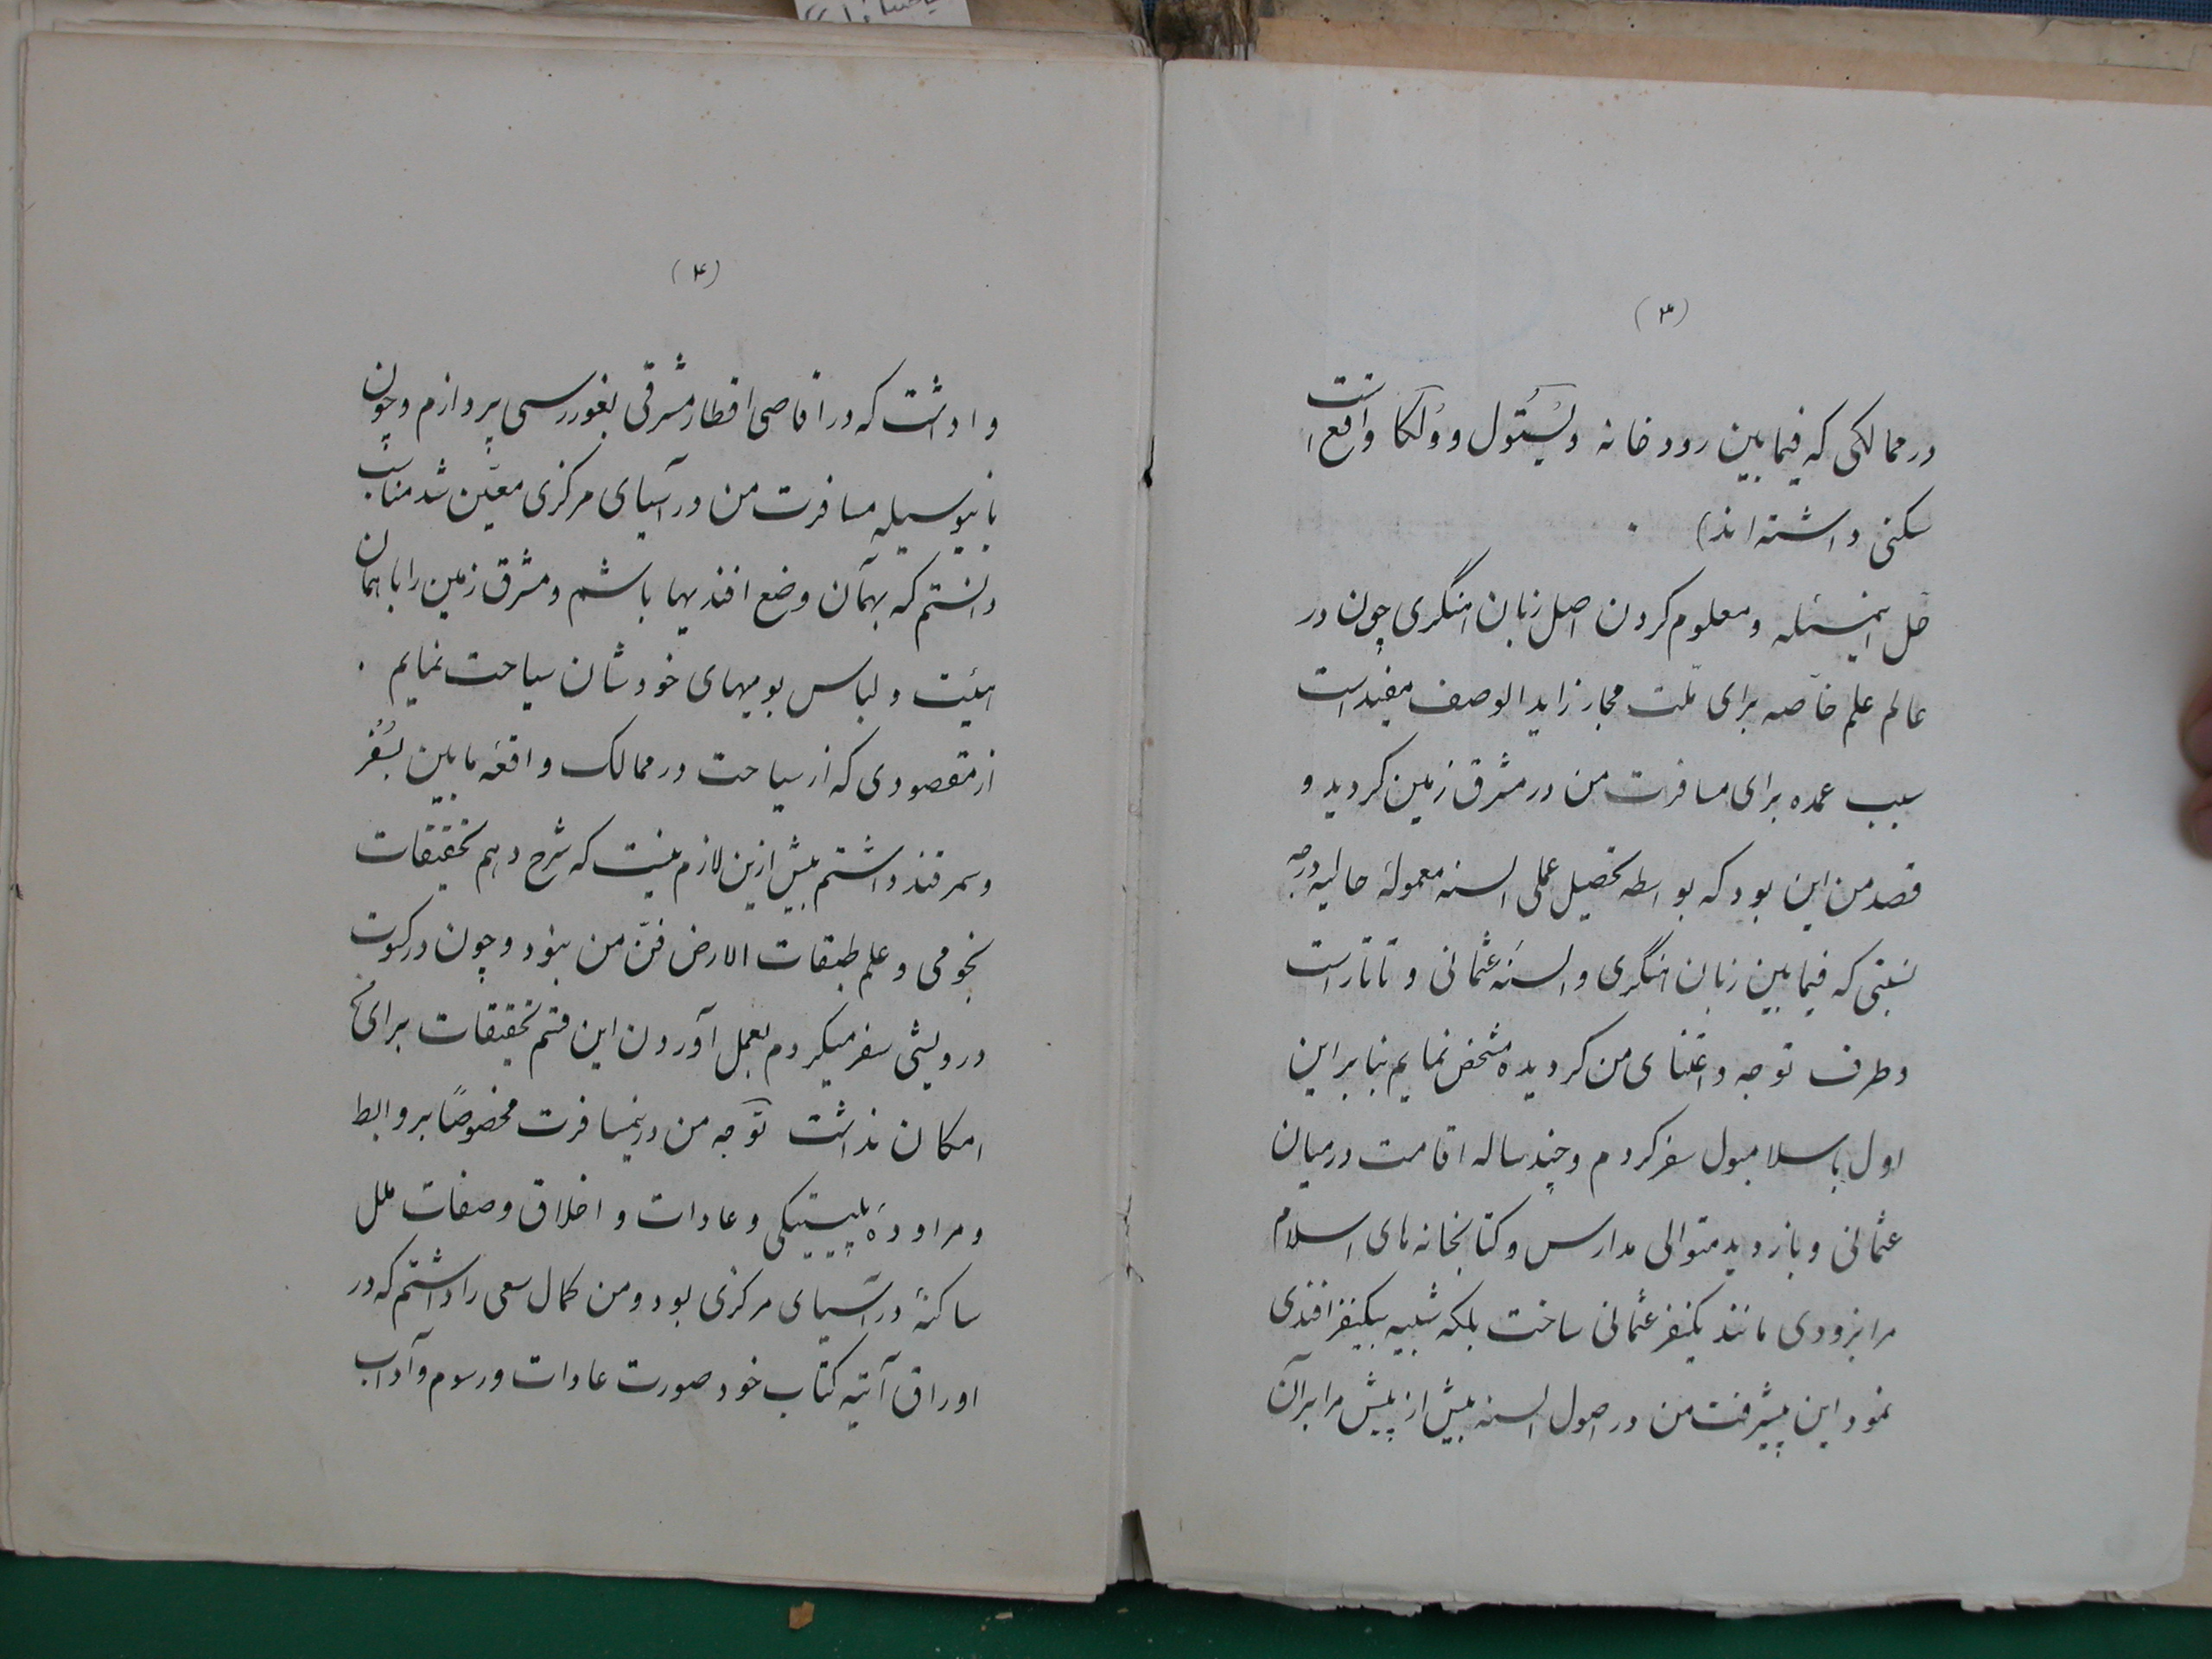 (۳)
در ممالکی که فیمابین رودخانه ویستول و ولگا واقع است
سکنی داشته‌اند) .
حل اینمسئله و معلوم کردن اصل زبان هنگری چون در
عالم علم خاصه برای ملت مجار زاید الوصف مفید است
سبب عمده برای مسافرت من در مشرق زمین گردید و
قصد من این بود که بواسطه تحصیل عملی السنه معموله حالیه درجه
نسبتی که فیمابین زبان هنگری و السنه عثمانی و تاتار است
و طرف توجه و اعتنای من گردیده مشخص نمایم بنابراین
اول باسلامبول سفر کردم و چند ساله اقامت در میان
عثمانی و بازدید متوالی مدارس و کتابخانه های اسلام
مرا بزودی مانند یکنفر عثمانی ساخت بلکه شبیه بیکنفر افندی
نمود این پیشرفت من در اصول السنه بیش از پیش مرا بر آن
(۴)
واداشت که در اقاصی اقطار مشرقی بغوررسی پردازم و چون
باینوسیله مسافرت من در آسیای مرکزی معین شد مناسب
دانستم که بهمان وضع افندیها باشم و مشرق زمین را با همان
هیئت و لباس بومیهای خودشان سیاحت نمایم .
از مقصودی که از سیاحت در ممالک واقعه مابین بسفر
و سمرقند داشتم بیش ازین لازم نیست که شرح دهم تحقیقات
نجومی و علم طبقات الارض فن من نبود و چون در کسوت
درویشی سفر میکردم بعمل آوردن این قسم تحقیقات برای
امکان نداشت توجه من درینمسافرت مخصوصاً بروابط
و مراوده پلیتیکی و عادات و اخلاق و صفات ملل
ساکنهٔ در آسیای مرکزی بود و من کمال سعی را داشتم که در
اوراق آتیه کتاب خود صورت عادات و رسوم و آداب